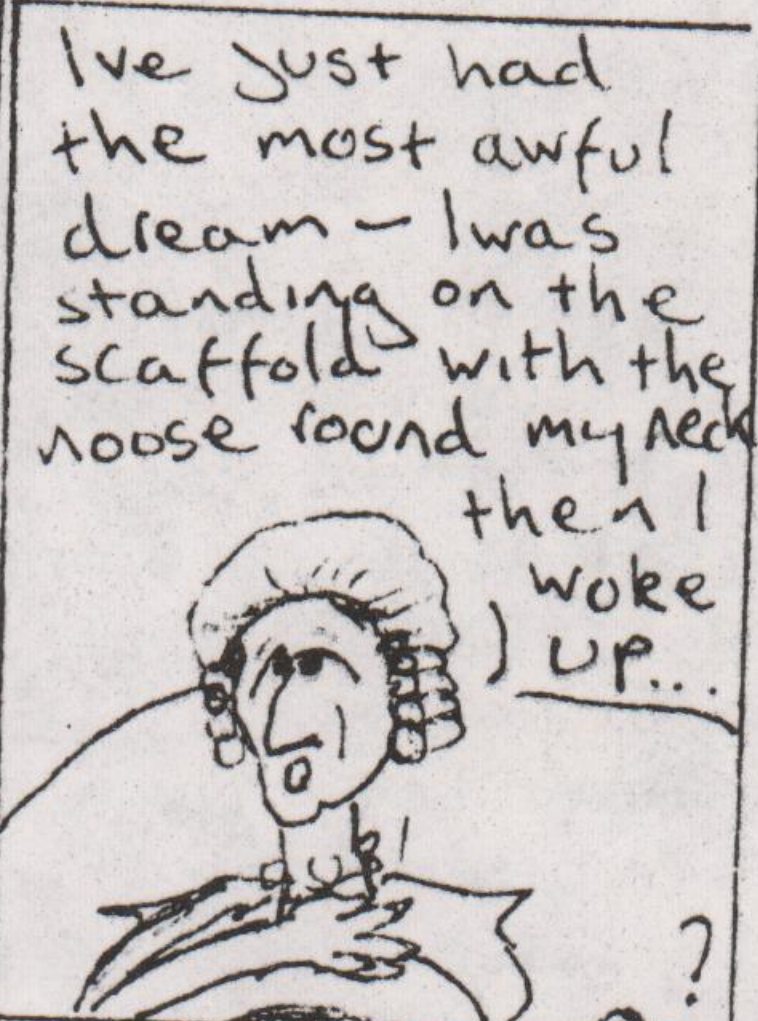 Ive just had
the most awful
dream - I was
standing on the
scaffold with the
noose round my neck
then I
woke
up...
?